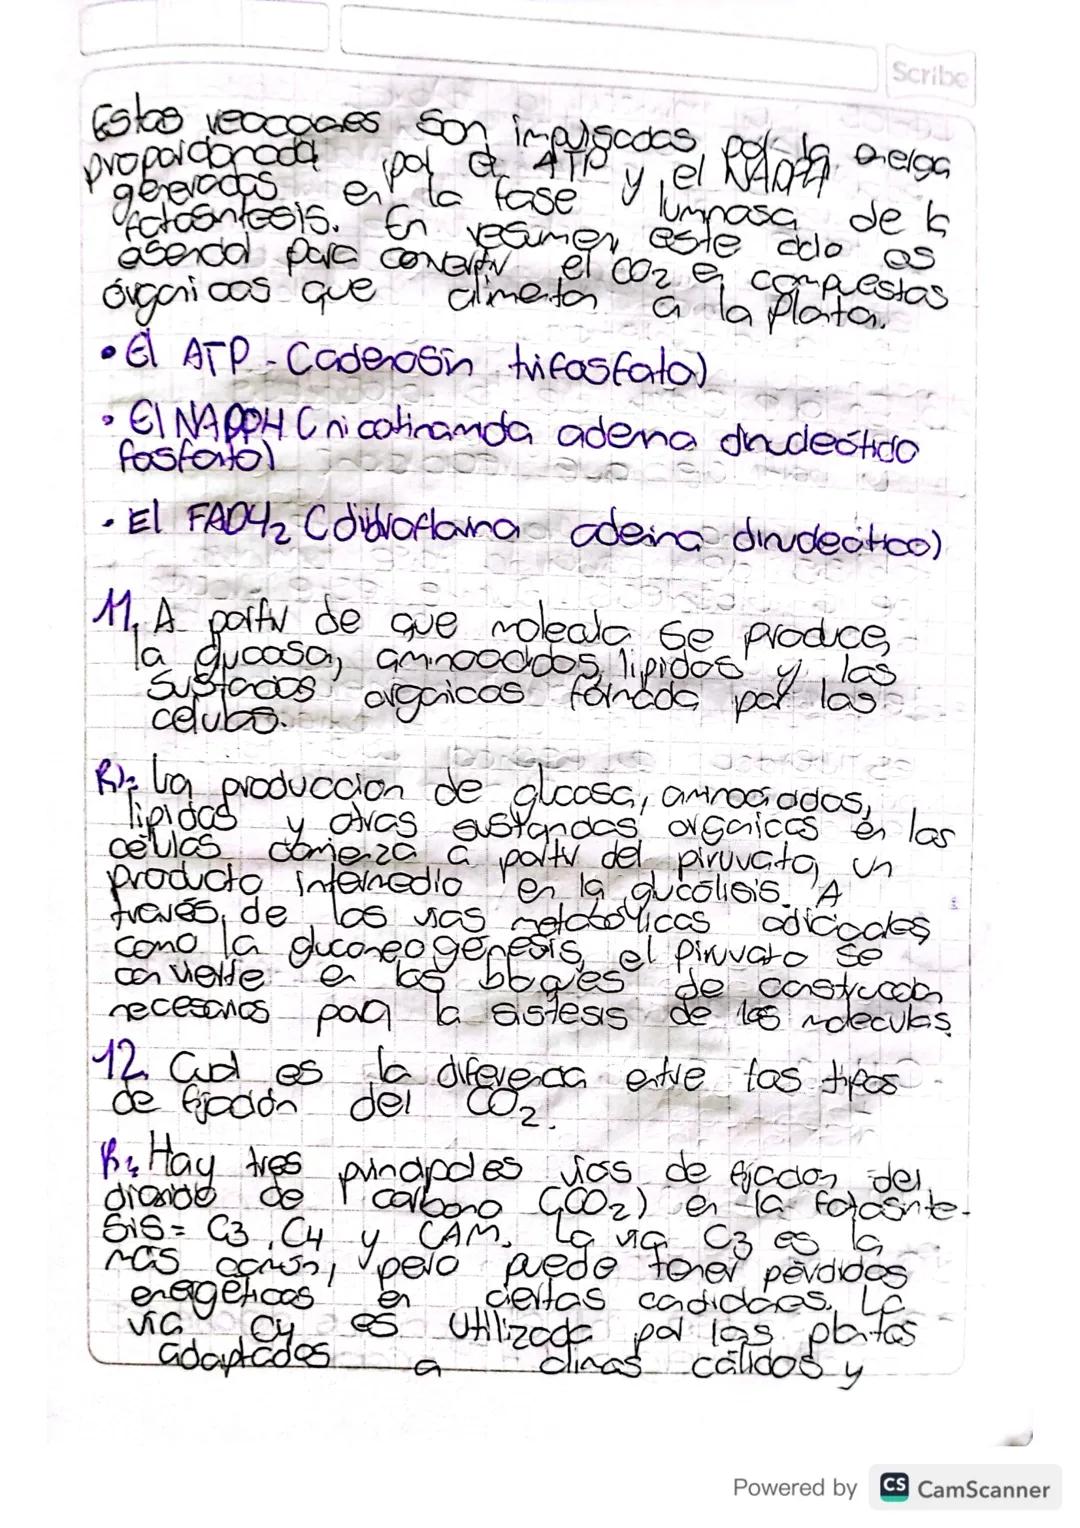 Scribe
Estas reacciones son impulsadas por la energa
proporcionada por el ATP y el NADPH
generadas en la fase luminosa de la
fotosíntesis. En resumen este ciclo es
esencial para convertir el CO2 en compuestos
órganicos que alimentan a la planta.
• El ATP - Cadenosin trifosfato)
• El NADPH (nicotinamida adenina dinucleótido
fosfato)
• El FADH2 (dihidroflavina adenina dinucleótico)
11. A partir de que molecula se produce,
la glucosa, aminoacidos, lipidos y las
sustancias organicas formada por las
celulas.
R)= La producción de glucosa, aminoacidos,
lipidos y otras sustancias organicas en las
células comienza a partir del piruvato, un
producto intermedio en la glucólisis. A
través, de las vias metabólicas adicionales
como la gluconeogénesis, el piruvato se
convierte en los bloques de construccion
necesarios para la sistesis de las moleculas.
12. Cual es la diferencia entre los tipos
de fijación del CO2.
R= Hay tres principales vias de fijacion del
dioxido de carbono (CO2) en la fotosinte-
sis= C3, C4 y CAM. La via C3 es la
más común, pero puede tener pérdidas
energéticas en ciertas condiciones. La
via C4 es utilizada por las plantas
adaptadas a climas cálidos y
Powered by CS CamScanner